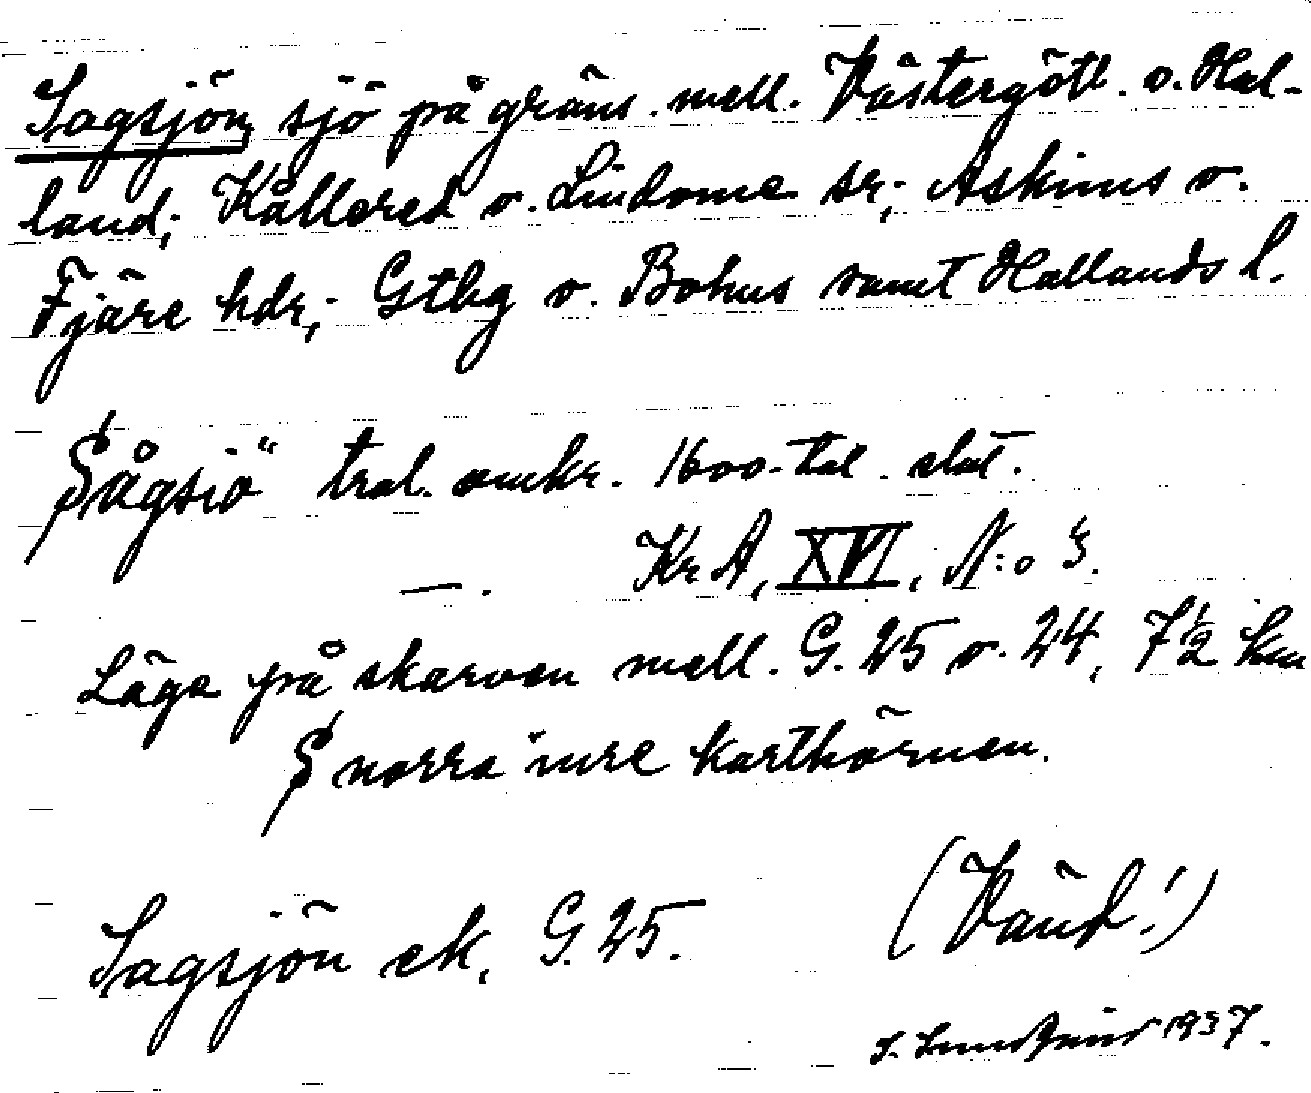 Sagsjön, sjö på gräns. mell. Västergötl. o. Hal-
land; Kållered o. Lindome sr; Askims o.
Fjäre hdr; Gtbg o. Bohus samt Hallands l.
Sågsiö" trol. omkr. 1600-tal. slut.
—. KrA, XVI, N:o 3.
Läge på skarven mell. G. 25 o. 24, 7½ km
S norra inre karthörnen.
Sagsjön ek. G. 25. (Vänd!)
1937.